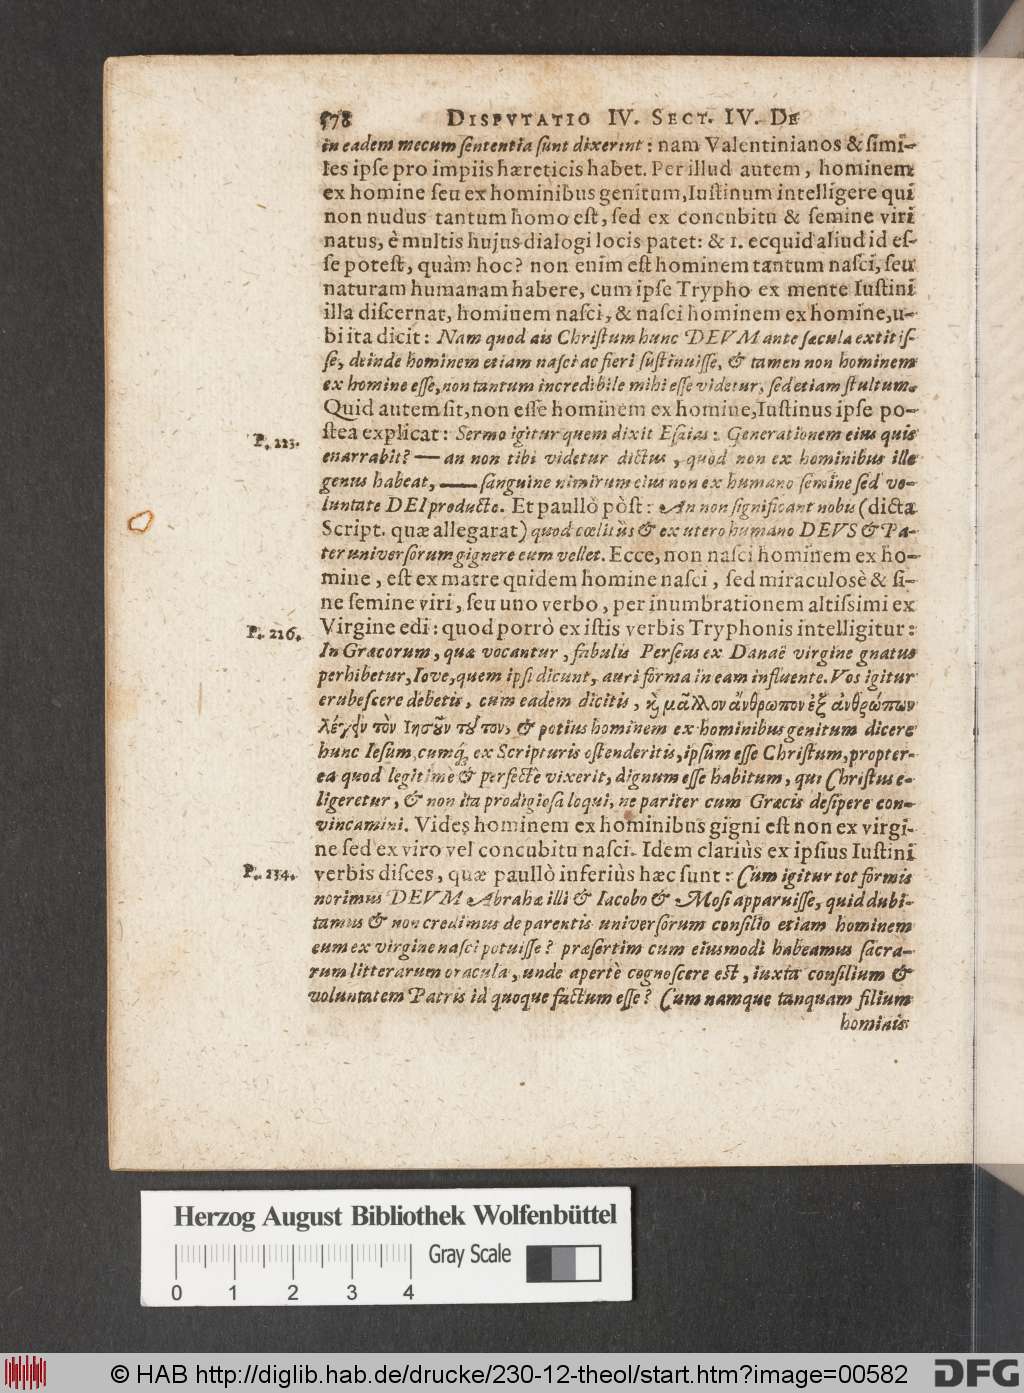 578 DISPVTATIO IV. SECT. IV. DE
in eadem mecum sententia sunt dixerint: nam Valentinianos & simi-
les ipse pro impiis hæreticis habet. Per illud autem, hominem
ex homine seu ex hominibus genitum, Iustinum intelligere qui
non nudus tantum homo est, sed ex concubitu & semine viri
natus, è multis hujus dialogi locis patet: & 1. ecquid aliud id es-
se potest, quàm hoc? non enim est hominem tantum nasci, seu
naturam humanam habere, cum ipse Trypho ex mente Iustini
illa discernat, hominem nasci, & nasci hominem ex homine, u-
bi ita dicit: Nam quod ais Christum hunc DEVM ante sæcula extitis-
se, deinde hominem etiam nasci ac fieri sustinuisse, & tamen non hominem
ex homine esse, non tantum incredibile mihi esse videtur, sed etiam stultum.
Quid autem sit, non esse hominem ex homine, Iustinus ipse po-
stea explicat: Sermo igitur quem dixit Esaias: Generationem eius quis
P. 223.
enarrabit? — an non tibi videtur dictus, quod non ex hominibus ille
genus habeat, — sanguine nimirum eius non ex humano semine sed vo-
luntate DEI producto. Et paullò pòst: An non significant nobis (dicta
Script. quæ allegarat) quod cœlitùs & ex utero humano DEVS & Pa-
ter universorum gignere eum vellet. Ecce, non nasci hominem ex ho-
mine, est ex matre quidem homine nasci, sed miraculosè & si-
ne semine viri, seu uno verbo, per inumbrationem altissimi ex
P. 226.
Virgine edi: quod porrò ex istis verbis Tryphonis intelligitur:
In Græcorum, quæ vocantur, fabulis Perseus ex Danaë virgine gnatus
perhibetur, Iove, quem ipsi dicunt, auri forma in eam influente. Vos igitur
erubescere debetis, cum eadem dicitis, ϗ μᾶλλον ἄνθρωπον ἐξ ἀνθρώπων
λέγειν τὸν Ἰησοῦν τοῦτον, & potius hominem ex hominibus genitum dicere
hunc Iesum, cumq; ex Scripturis ostenderitis, ipsum esse Christum, propter-
ea quod legitime & perfectè vixerit, dignum esse habitum, qui Christus e-
ligeretur, & non ita prodigiosa loqui, ne pariter cum Græcis desipere con-
vincamini. Vides hominem ex hominibus gigni est non ex virgi-
ne sed ex viro vel concubitu nasci. Idem clariùs ex ipsius Iustini
P. 234.
verbis disces, quæ paullò inferiùs hæc sunt: Cum igitur tot formis
norimus DEVM Abrahæ illi & Iacobo & Mosi apparuisse, quid dubi-
tamus & non credimus de parentis universorum consilio etiam hominem
eum ex virgine nasci potuisse? præsertim cum eiusmodi habeamus sacra-
rum litterarum oracula, unde apertè cognoscere est, iuxta consilium &
voluntatem Patris id quoque factum esse? Cum namque tanquam filium
hominis
Herzog August Bibliothek Wolfenbüttel
Gray Scale
0 1 2 3 4
© HAB http://diglib.hab.de/drucke/230-12-theol/start.htm?image=00582
DFG